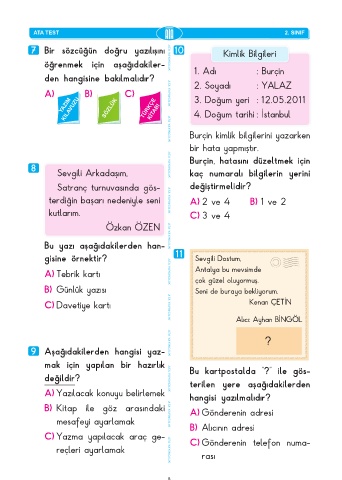 ATA TEST
2. SINIF
7 Bir sözcüğün doğru yazılışını
öğrenmek için aşağıdakiler-
den hangisine bakılmalıdır?
A) YAZIM KILAVUZU B) SÖZLÜK C) TÜRKÇE KİTABI
8
Sevgili Arkadaşım,
Satranç turnuvasında gös-
terdiğin başarı nedeniyle seni
kutlarım.
Özkan ÖZEN
Bu yazı aşağıdakilerden han-
gisine örnektir?
A) Tebrik kartı
B) Günlük yazısı
C) Davetiye kartı
9 Aşağıdakilerden hangisi yaz-
mak için yapılan bir hazırlık
değildir?
A) Yazılacak konuyu belirlemek
B) Kitap ile göz arasındaki
mesafeyi ayarlamak
C) Yazma yapılacak araç ge-
reçleri ayarlamak
10
Kimlik Bilgileri
1. Adı : Burçin
2. Soyadı : YALAZ
3. Doğum yeri : 12.05.2011
4. Doğum tarihi : İstanbul
Burçin kimlik bilgilerini yazarken
bir hata yapmıştır.
Burçin, hatasını düzeltmek için
kaç numaralı bilgilerin yerini
değiştirmelidir?
A) 2 ve 4 B) 1 ve 2
C) 3 ve 4
11
Sevgili Dostum,
Antalya bu mevsimde
çok güzel oluyormuş.
Seni de buraya bekliyorum.
Kenan ÇETİN
Alıcı: Ayhan BİNGÖL
?
Bu kartpostalda "?" ile gös-
terilen yere aşağıdakilerden
hangisi yazılmalıdır?
A) Gönderenin adresi
B) Alıcının adresi
C) Gönderenin telefon numa-
rası